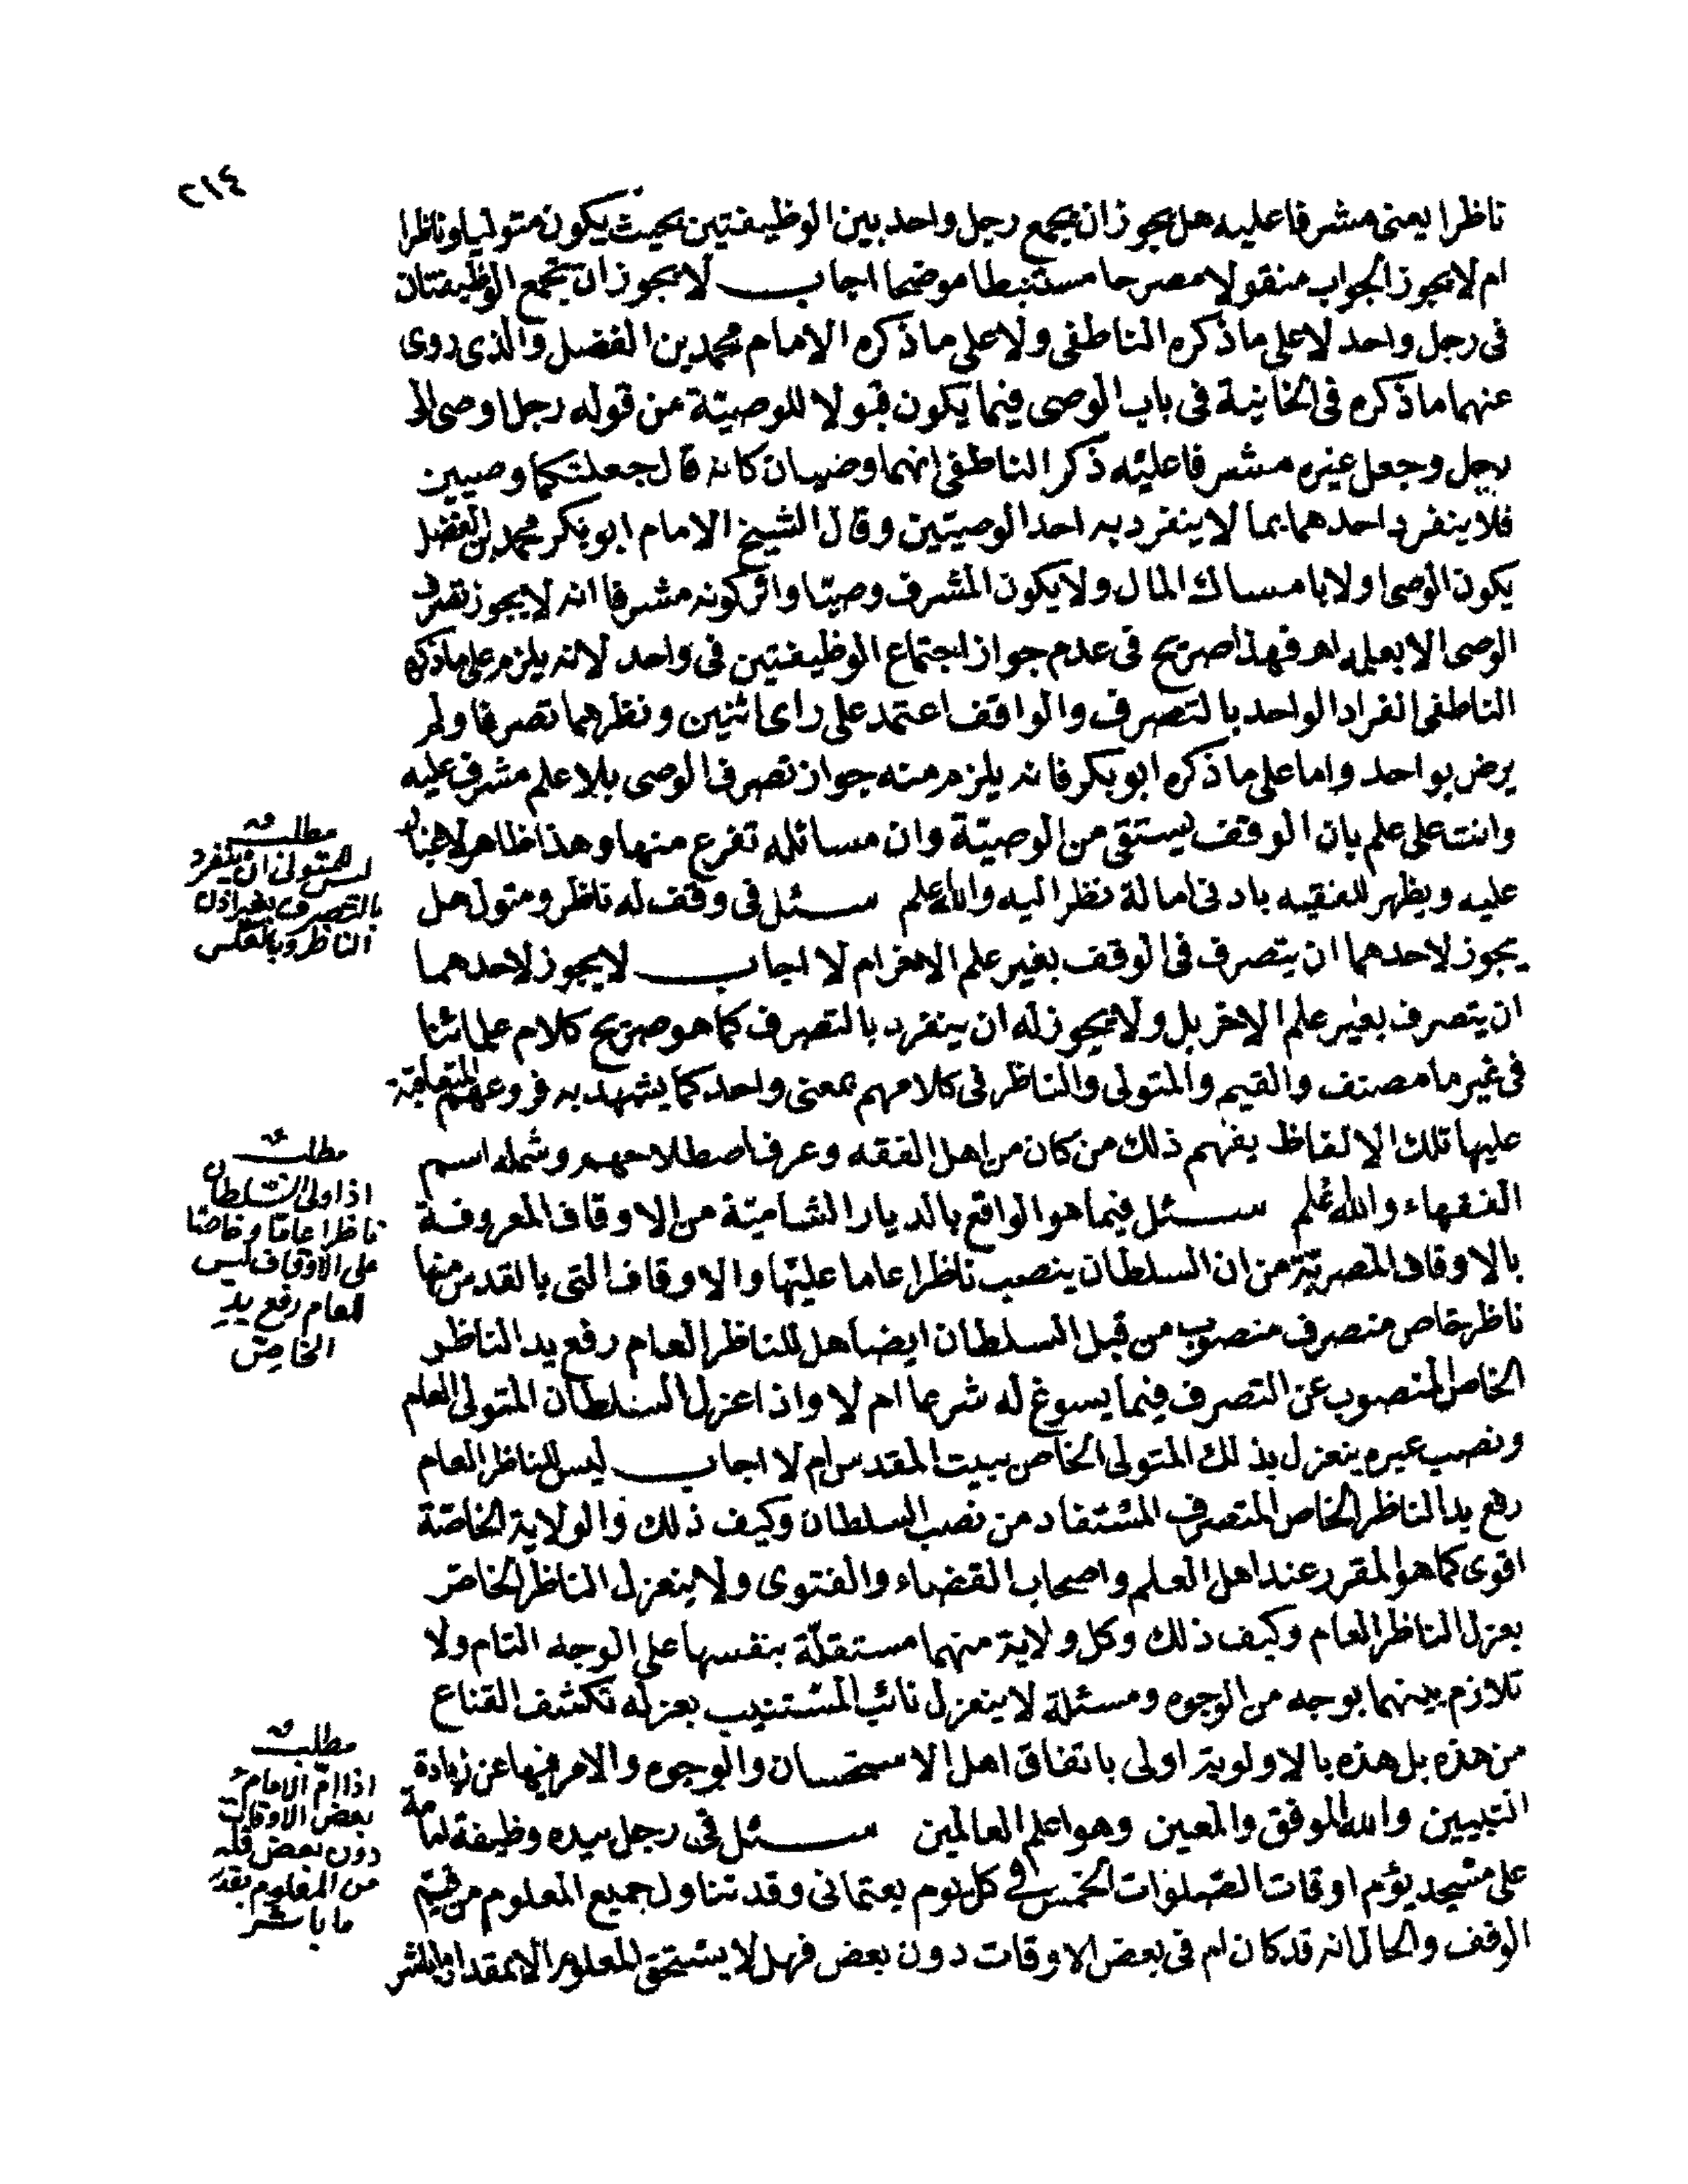 ٢١٤
ناظرا يعنى مشرفا عليه هل يجوز ان يجمع رجل واحد بين الوظيفتين بحيث يكون متوليا وناظرا
ام لا يجوز الجواب منقولا مصرحا مستنبطا موضحا اجاب لا يجوز ان تجمع الوظيفتان
فى رجل واحد لا على ما ذكره الناطفى ولا على ما ذكره الامام محمد بن الفضل والذى روى
عنهما ما ذكره فى الخانية فى باب الوصى فيما يكون قبولا للوصية من قوله رجل اوصى الى
رجل وجعل غيره مشرفا عليه ذكر الناطفى انهما وصيان كانه قال جعلتكما وصيين
فلا ينفرد احدهما بما لا ينفرد به احد الوصيين وقال الشيخ الامام ابو بكر محمد بن الفضل
يكون الوصى اولا بامساك المال ولا يكون المشرف وصيا واثر كونه مشرفا انه لا يجوز تصرف
الوصى الا بعلمه اهـ فهذا صريح فى عدم جواز اجتماع الوظيفتين فى واحد لانه يلزم على ما ذكره
الناطفى انفراد الواحد بالتصرف والواقف اعتمد على راى اثنين ونظرهما تصرفا ولم
يرض بواحد واما على ما ذكره ابو بكر فانه يلزم منه جواز تصرف الوصى بلا علم مشرف عليه
وانت على علم بان الوقف يستقى من الوصية وان مسائله تفرع منها وهذا ظاهر لا غبار
عليه ويظهر للفقيه بادنى امالة نظر اليه والله اعلم سئل فى وقف له ناظر ومتول هل
يجوز لاحدهما ان يتصرف فى الوقف بغير علم الاخر ام لا اجاب لا يجوز لاحدهما
ان يتصرف بغير علم الاخر بل ولا يجوز له ان ينفرد بالتصرف كما هو صريح كلام علمائنا
فى غير ما مصنف والقيم والمتولى والناظر فى كلامهم بمعنى واحد كما يشهد به فروعهم المتعلقة
عليها تلك الالفاظ يفهم ذلك من كان من اهل الفقه وعرف اصطلاحهم وشمله اسم
الفقهاء والله اعلم سئل فيما هو الواقع بالديار الشامية من الاوقاف المعروفة
بالاوقاف المصرية من ان السلطان ينصب ناظرا عاما عليها والاوقاف التى بالقدس منها
ناظر خاص متصرف منصوب من قبل السلطان ايضا هل للناظر العام رفع يد الناظر
الخاص المنصوب عن التصرف فيما يسوغ له شرعا ام لا واذا عزل السلطان المتولى العام
ونصب غيره ينعزل بذلك المتولى الخاص ببيت المقدس ام لا اجاب ليس للناظر العام
رفع يد الناظر الخاص المتصرف المستفاد من نصب السلطان وكيف ذلك والولاية الخاصة
اقوى كما هو المقرر عند اهل العلم واصحاب القضاء والفتوى ولا ينعزل الناظر الخاص
بعزل الناظر العام وكيف ذلك وكل ولاية منهما مستقلة بنفسها على الوجه التام ولا
تلازم بينهما بوجه من الوجوه ومسئلة لا ينعزل نائب المستنيب بعزله تكشف القناع
من هذه بل هذه بالاولوية اولى باتفاق اهل الاستحسان والوجوه والامر فيها عن زيادة
التبيين والله الموفق والمعين وهو اعلم العالمين سئل فى رجل بيده وظيفة امامة
على مسجد يؤم اوقات الصلوات الخمس فى كل يوم بعثمانى وقد تناول جميع المعلوم من قيم
الوقف والحال انه قد كان ام فى بعض الاوقات دون بعض فهل لا يستحق المعلوم الا بمقدار ما باشر
مطلب
ليس للمتولى ان ينفرد
بالتصرف بغير اذن
الناظر وبالعكس
مطلب
اذا ولى السلطان
ناظرا عاما وخاصا
على الاوقاف ليس
للعام رفع يد
الخاص
مطلب
اذا ام الامام
بعض الاوقات
دون بعض فله
من المعلوم بقدر
ما باشر